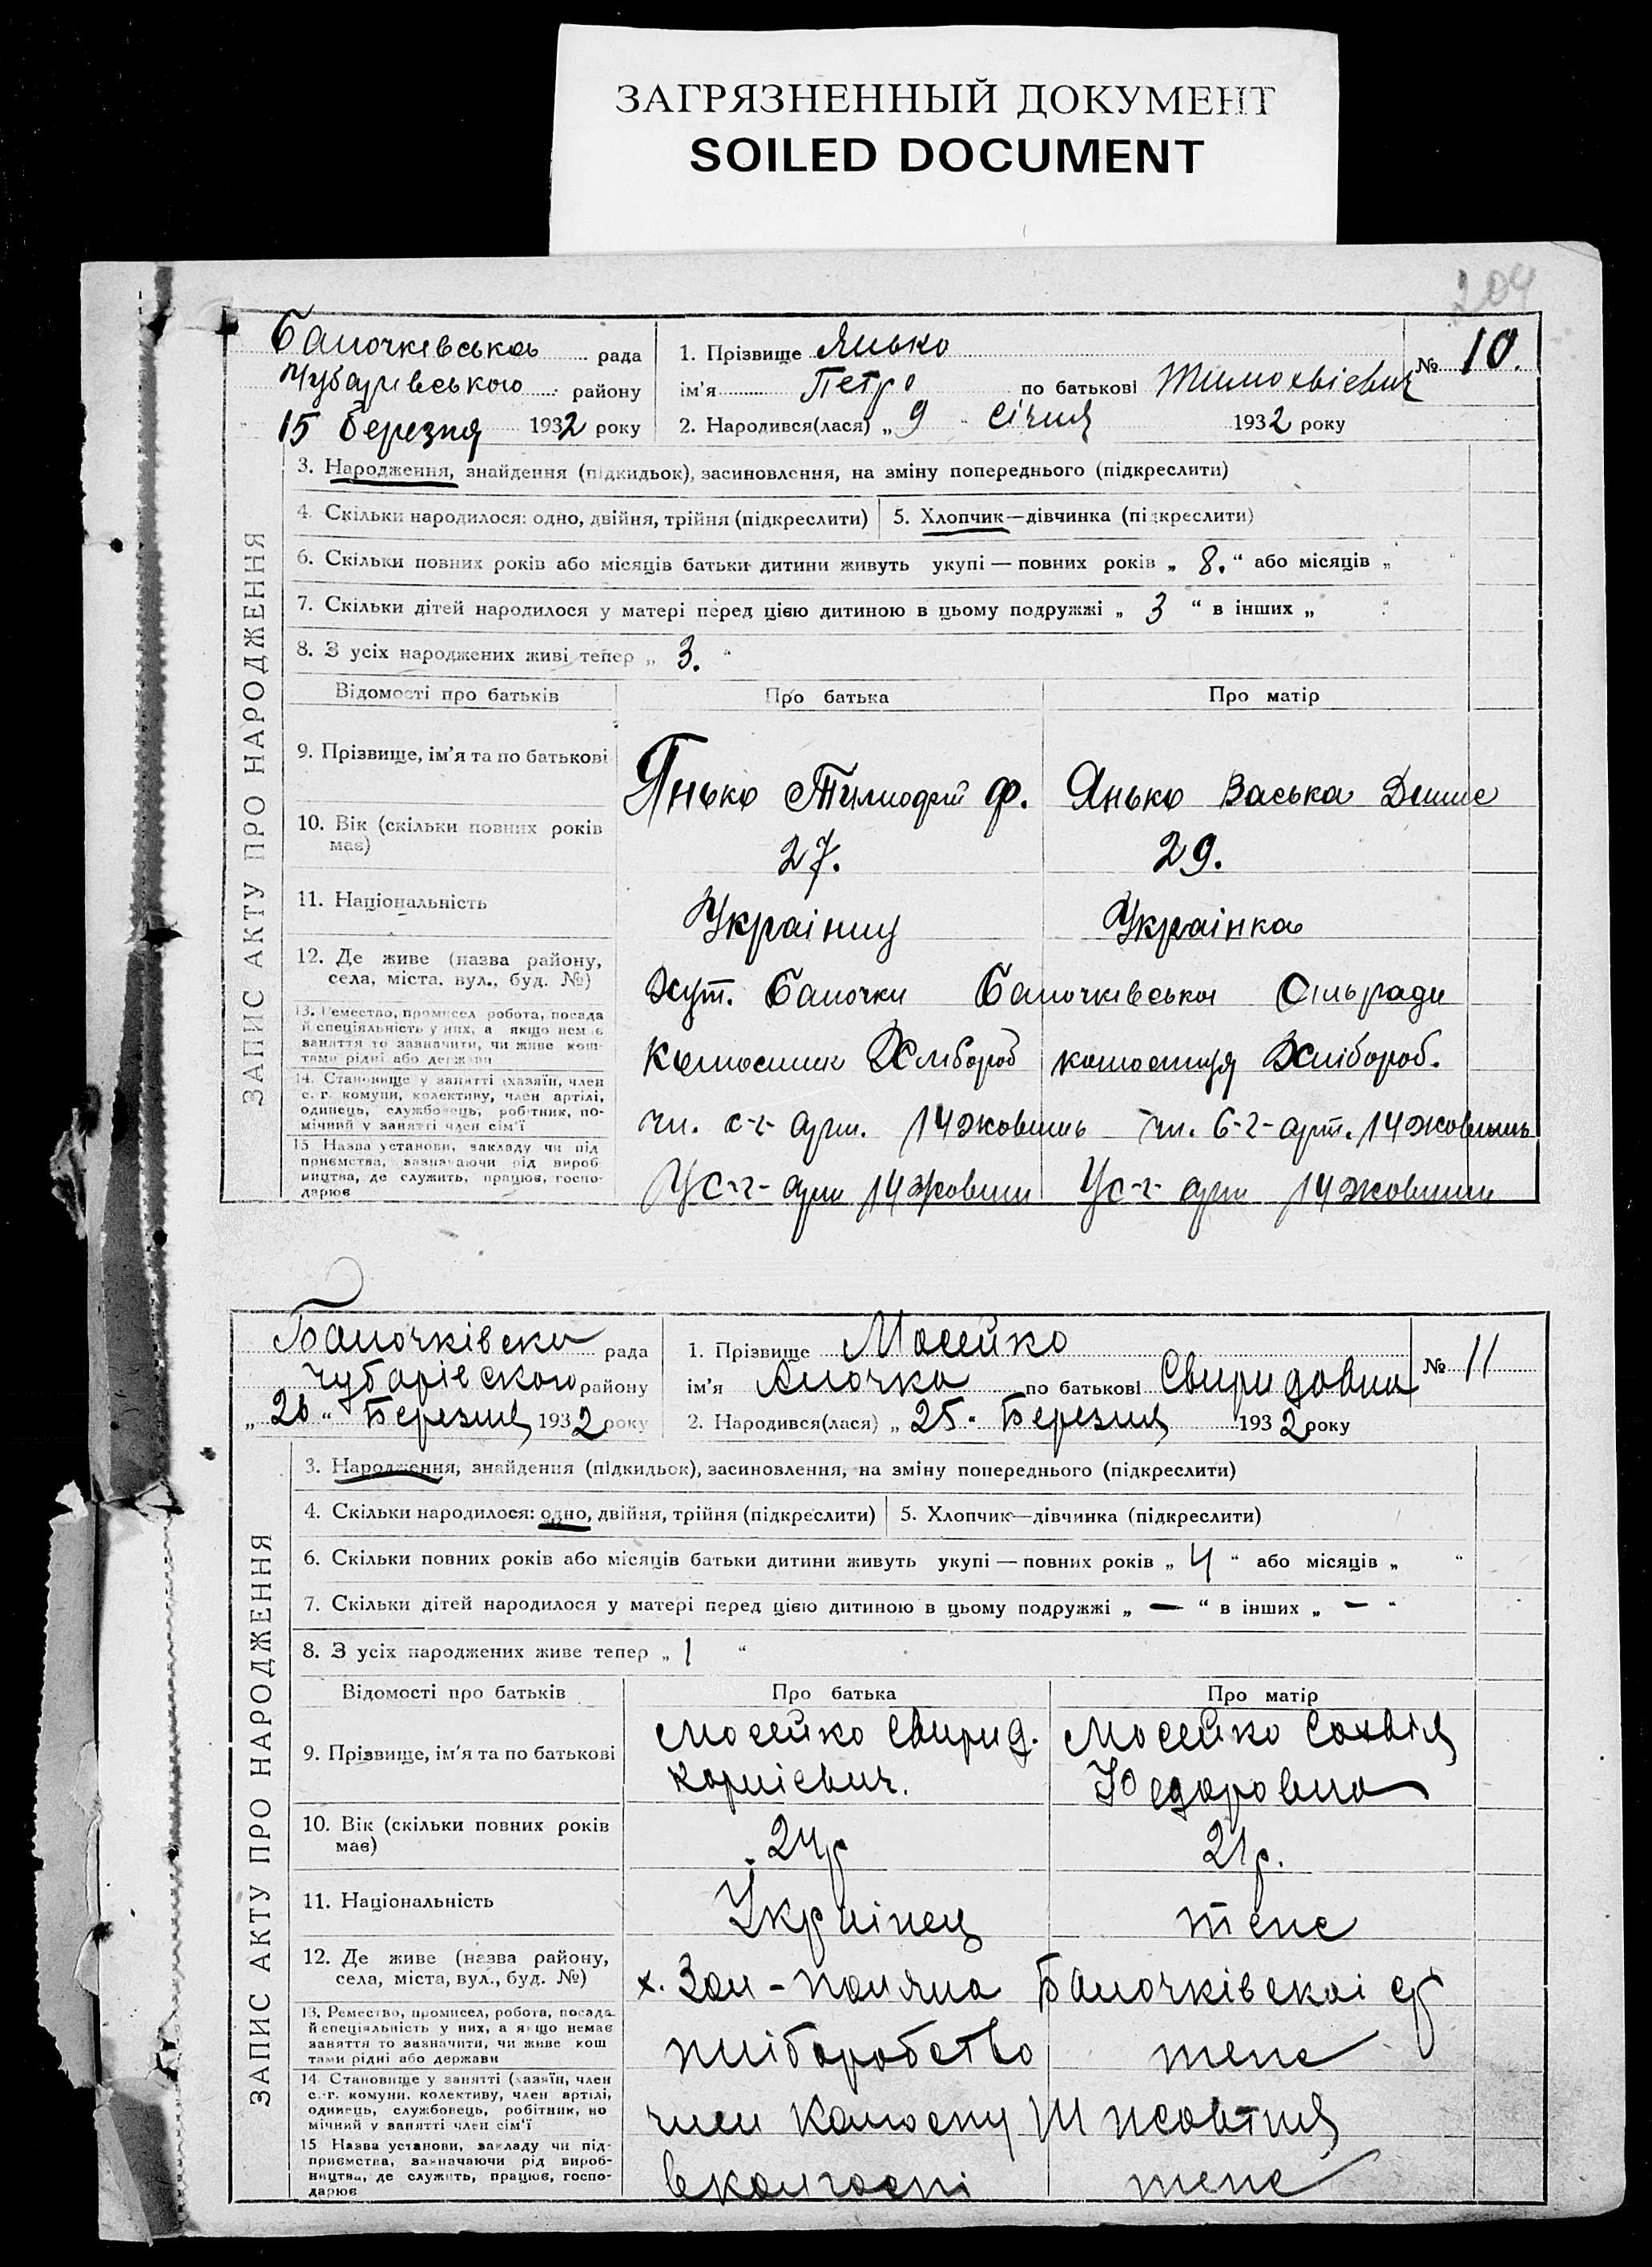 ЗАГРЯЗНЕННЫЙ ДОКУМЕНТ
SOILED DOCUMENT
204
ЗАПИС АКТУ ПРО НАРОДЖЕННЯ
Балочківська рада
Чубарівського району
15 березня 1932 року
1. Прізвище Янько
№ 10.
ім'я Петро по батькові Тимохвієвич
2. Народився(лася) „ 9 січня 1932 року
3. Народження, знайдення (підкидьок), засиновлення, на зміну попереднього (підкреслити)
4. Скільки народилося: одно, двійня, трійня (підкреслити)
5. Хлопчик—дівчинка (підкреслити)
6. Скільки повних років або місяців батьки дитини живуть укупі — повних років „ 8. “ або місяців „ “
7. Скільки дітей народилося у матері перед цією дитиною в цьому подружжі „ 3 “ в інших „
8. З усіх народжених живі тепер „ 3. “
Відомості про батьків
Про батька
Про матір
9. Прізвище, ім'я та по батькові
Янько Тимофій Ф.
Янько Васька
10. Вік (скільки повних років
має)
27.
29.
11. Національність
Україниц
Українка
12. Де живе (назва району,
села, міста, вул., буд. №)
Хут. Балочки Балочківська Сільради
13. Ремество, промисел робота, посада
й спеціяльність у них, а якщо нем є
заняття то зазначити, чи живе кош-
тами рідні або держави
Хлібороб
Хлібороб.
14. Становище у занятті (хазяїн, член
с.-г. комуни, колективу, член артілі,
одинець, службовець, робітник, по-
мічний у занятті член сім'ї
чл. с-г- арт. 14 жовтень
чл. с-г- арт. 14 жовтень
15 Назва установи, закладу чи під
приємства, зазначаючи рід вироб
ництва, де служить, працює, госпо-
дарює
У с-г- арт 14 жовтни
У с-г- арт 14 жовтни
ЗАПИС АКТУ ПРО НАРОДЖЕННЯ
Балочківска рада
Чубарівского району
„ 26 “ Березня 1932 року
1. Прізвище Мосейко
№ 11
ім'я Алочка по батькові Свиридовна
2. Народився(лася) „ 25 “ Березня 1932 року
3. Народження, знайдення (підкидьок), засиновлення, на зміну попереднього (підкреслити)
4. Скільки народилося: одно, двійня, трійня (підкреслити)
5. Хлопчик—дівчинка (підкреслити)
6. Скільки повних років або місяців батьки дитини живуть укупі — повних років „ 4 “ або місяців „ “
7. Скільки дітей народилося у матері перед цією дитиною в цьому подружжі „ — “ в інших „ — “
8. З усіх народжених живе тепер „ 1 “
Відомості про батьків
Про батька
Про матір
9. Прізвище, ім'я та по батькові
Мосейко Свирид.
Корнієвич.
Мосейко Сохвія
Хведоровна
10. Вік (скільки повних років
має)
24р
21р.
11. Національність
Українец
теже
12. Де живе (назва району,
села, міста, вул., буд. №)
х. Зал-поляна Балочківскаі ср
13. Ремество, промисел, робота, посада
й спеціяльність у них, а якщо немає
заняття то зазначити, чи живе кош
тами рідні або держави
хліборобство
теже
14. Становище у занятті (хазяїн, член
с.-г. комуни, колективу, член артілі,
одинець, службовець, робітник, по
мічний у занятті член сім'ї
член Колгоспу 14 жовтня
15 Назва установи, закладу чи під-
приємства, зазначаючи рід вироб-
ництва, де служить, працює, госпо-
дарює
в колгоспі
теже